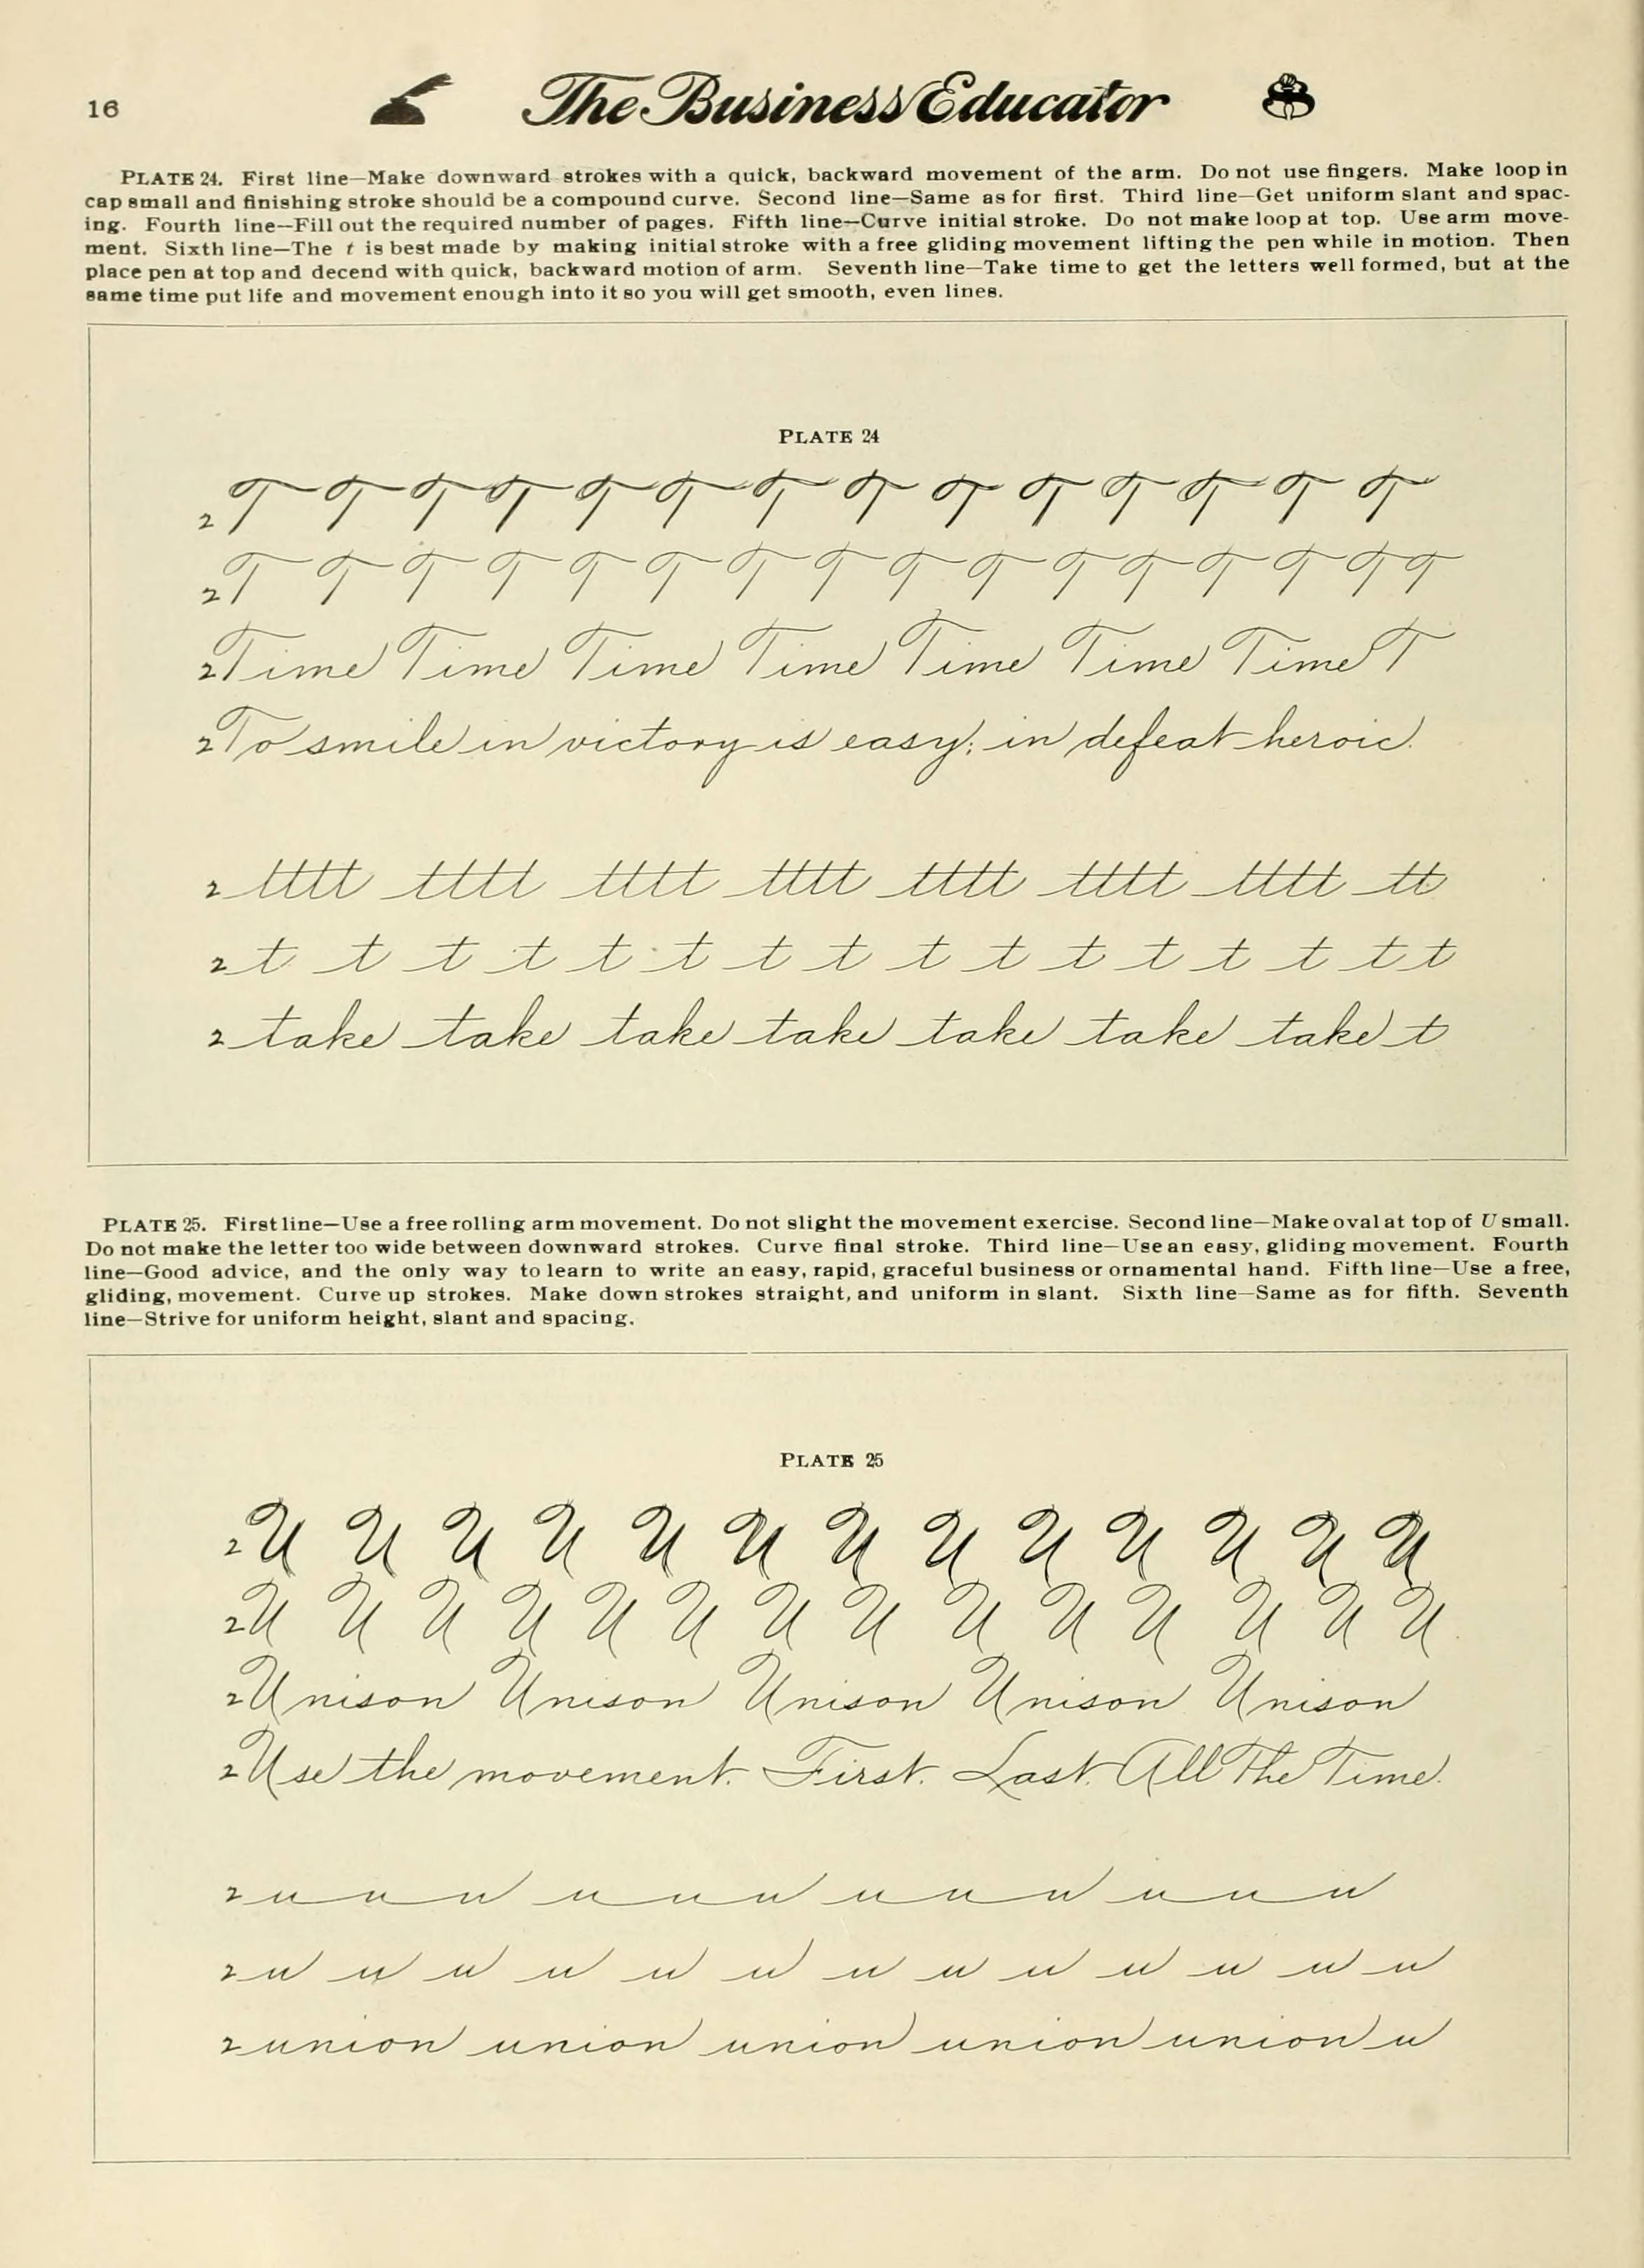 16
The Business Educator
PLATE 24. First line—Make downward strokes with a quick, backward movement of the arm. Do not use fingers. Make loop in
cap small and finishing stroke should be a compound curve. Second line—Same as for first. Third line—Get uniform slant and spac-
ing. Fourth line—Fill out the required number of pages. Fifth line—Curve initial stroke. Do not make loop at top. Use arm move-
ment. Sixth line—The t is best made by making initial stroke with a free gliding movement lifting the pen while in motion. Then
place pen at top and decend with quick, backward motion of arm. Seventh line—Take time to get the letters well formed, but at the
same time put life and movement enough into it so you will get smooth, even lines.
PLATE 24
2 T T T T T T T T T T T T T T
2 T T T T T T T T T T T T T T T T
2 Time Time Time Time Time Time Time T
2 To smile in victory is easy; in defeat heroic.
2 tttt tttt tttt tttt tttt tttt tttt tt
2 t t t t t t t t t t t t t t t t
2 take take take take take take take t
PLATE 25. First line—Use a free rolling arm movement. Do not slight the movement exercise. Second line—Make oval at top of U small.
Do not make the letter too wide between downward strokes. Curve final stroke. Third line—Use an easy, gliding movement. Fourth
line—Good advice, and the only way to learn to write an easy, rapid, graceful business or ornamental hand. Fifth line—Use a free,
gliding, movement. Curve up strokes. Make down strokes straight, and uniform in slant. Sixth line—Same as for fifth. Seventh
line—Strive for uniform height, slant and spacing.
PLATE 25
2 U U U U U U U U U U U U U
2 U U U U U U U U U U U U U U
2 Unison Unison Unison Unison Unison
2 Use the movement. First. Last. All The Time.
2 u u u u u u u u u u u u
2 u u u u u u u u u u u u u
2 union union union union union u